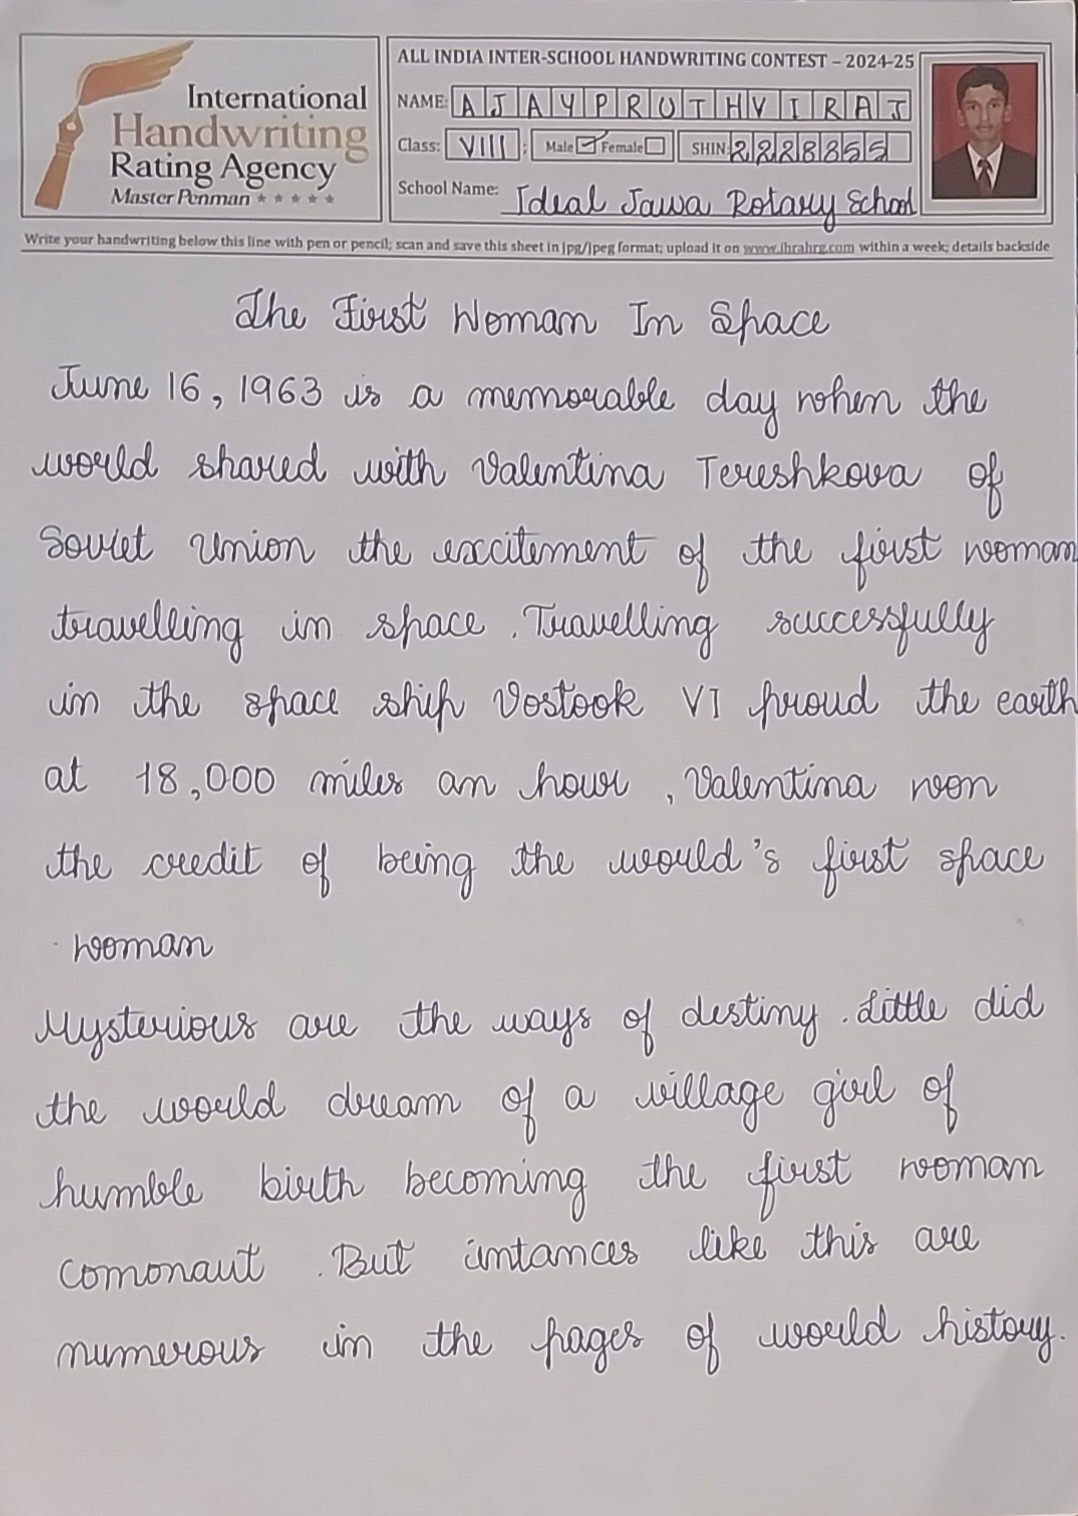 International
Handwriting
Rating Agency
Master Penman ★★★★★
ALL INDIA INTER-SCHOOL HANDWRITING CONTEST – 2024-25
NAME: AJAY PRUTHVIRAJ
Class: VIII ; Male ☑ Female ☐ SHIN: 2228355
School Name: Ideal Jawa Rotary School
Write your handwriting below this line with pen or pencil; scan and save this sheet in jpg/jpeg format; upload it on www.ihrahrg.com within a week; details backside
The First Woman In Space
June 16, 1963 is a memorable day when the
world shared with Valentina Tereshkova of
Soviet Union the excitement of the first woman
travelling in space . Travelling successfully
in the space ship Vostook VI proud the earth
at 18,000 miles an hour , Valentina won
the credit of being the world's first space
woman
Mysterious are the ways of destiny . Little did
the world dream of a village girl of
humble birth becoming the first woman
comonaut . But intances like this are
numerous in the pages of world history.